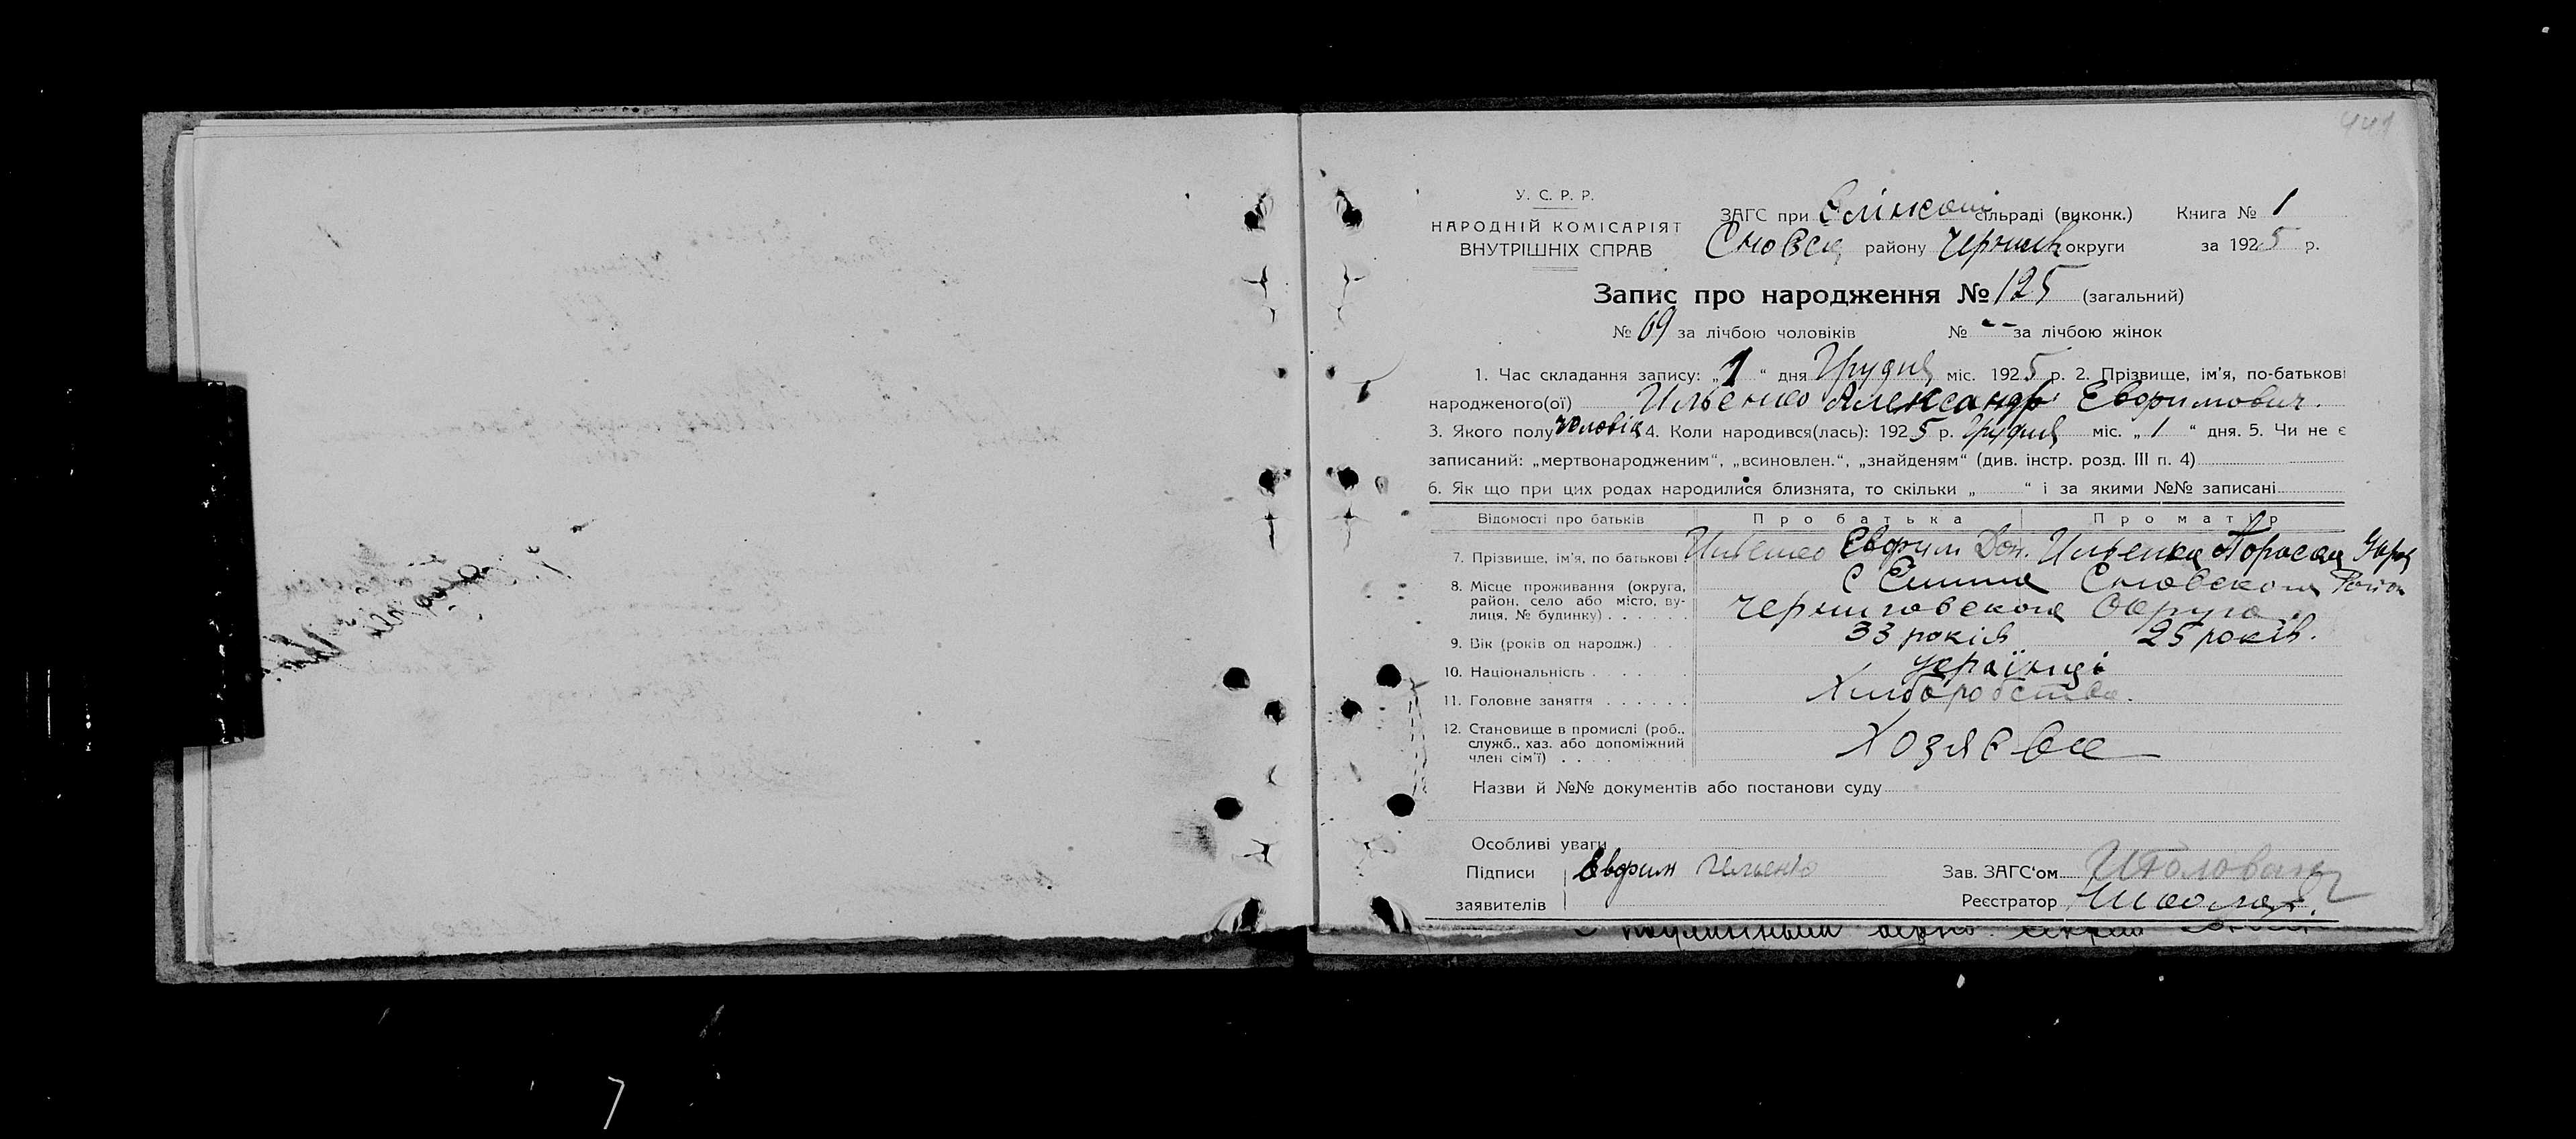 441
У. С. Р. Р.
НАРОДНІЙ КОМІСАРІЯТ
ВНУТРІШНІХ СПРАВ
ЗАГС при сільраді (виконк.) Книга № 1
Сновск району Черниг округи за 1925 р.
Запис про народження № 125 (загальний)
№ 69 за лічбою чоловіків № -- за лічбою жінок
1. Час складання запису: „1“ дня Грудня міс. 1925 р. 2. Прізвище, ім'я, по-батькові
народженого(ої) Ильенко Александр Евфимович.
3. Якого полу чоловіч 4. Коли народився(лась): 1925 р. Грудня міс. „1“ дня. 5. Чи не є
записаний: „мертвонародженим“, „всиновлен.“, „знайденям“ (див. інстр. розд. III п. 4)
6. Як що при цих родах народилися близнята, то скільки „ “ і за якими №№ записані
Відомості про батьків Про батька Про матір
7. Прізвище, ім'я, по батькові Ильенко Евфим Ильенко
8. Місце проживання (округа, район, село або місто, вулиця, № будинку) с Елина Сновского Район
Черниговского Округа
9. Вік (років од народж.) 33 років 25 років.
10. Національність українці
11. Головне заняття Хлиборобства.
12. Становище в промислі (роб., служб., хаз. або допоміжний член сім'ї) Хозяєва
Назви й №№ документів або постанови суду
Особливі уваги
Підписи Евфим Ильенко Зав. ЗАГС'ом
заявителів Реєстратор